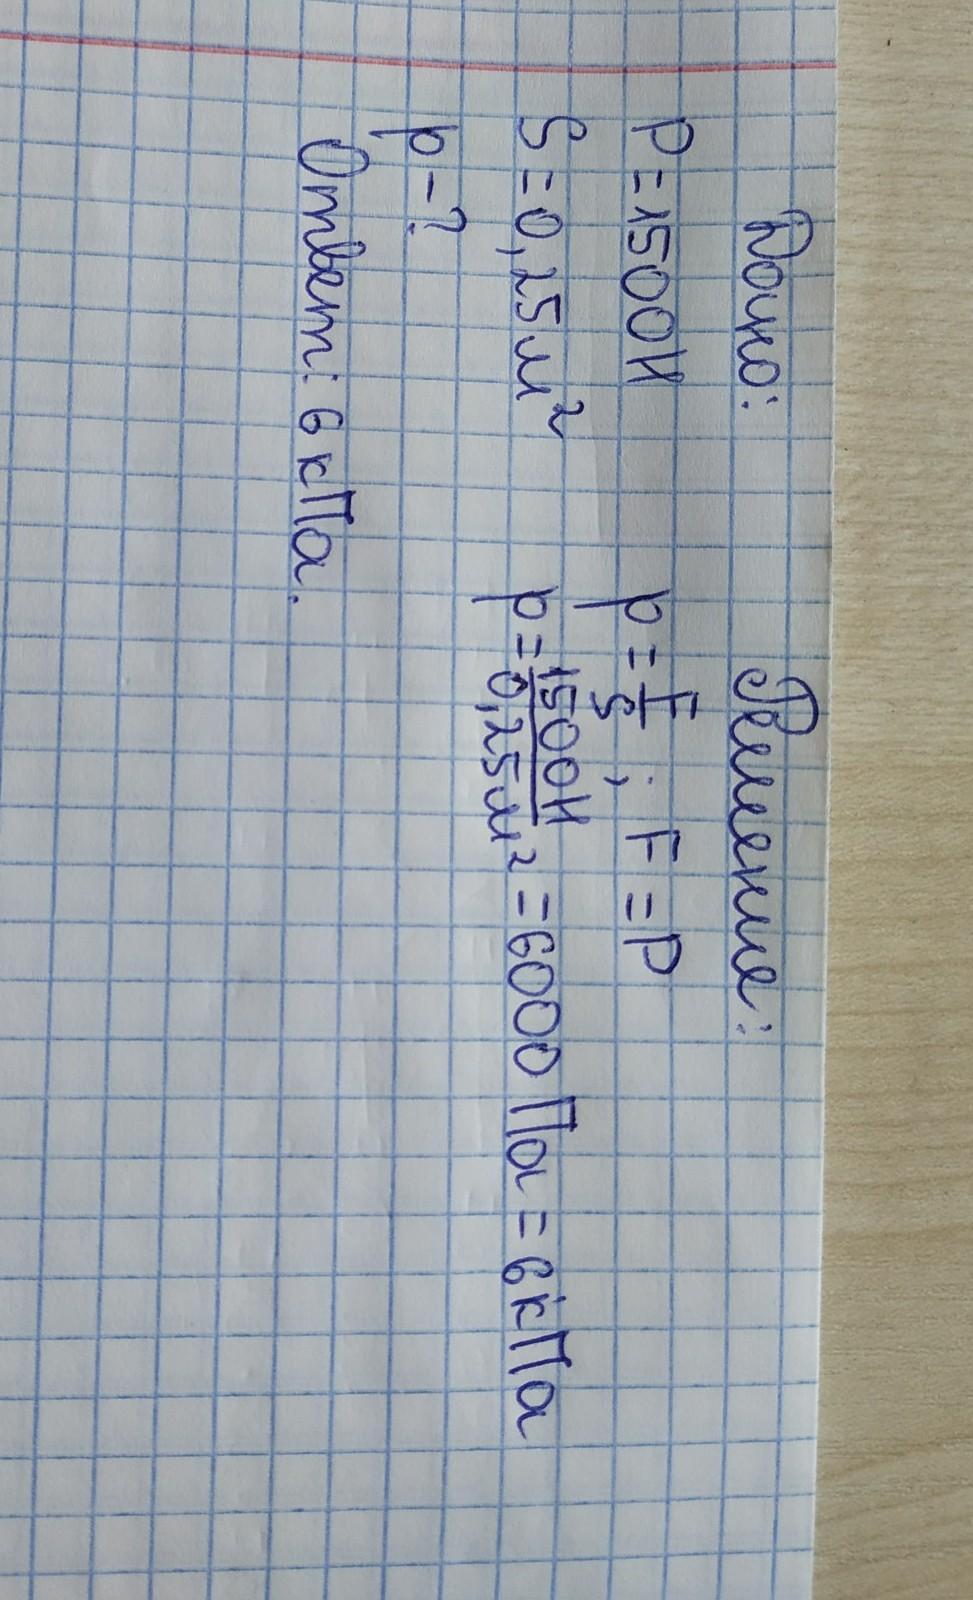 Дано:
P = 1500Н
S = 0,25м²
p - ?
Решение:
p = F/S ; F = P
p = 1500Н/0,25м² = 6000 Па = 6 кПа
Ответ: 6 кПа.